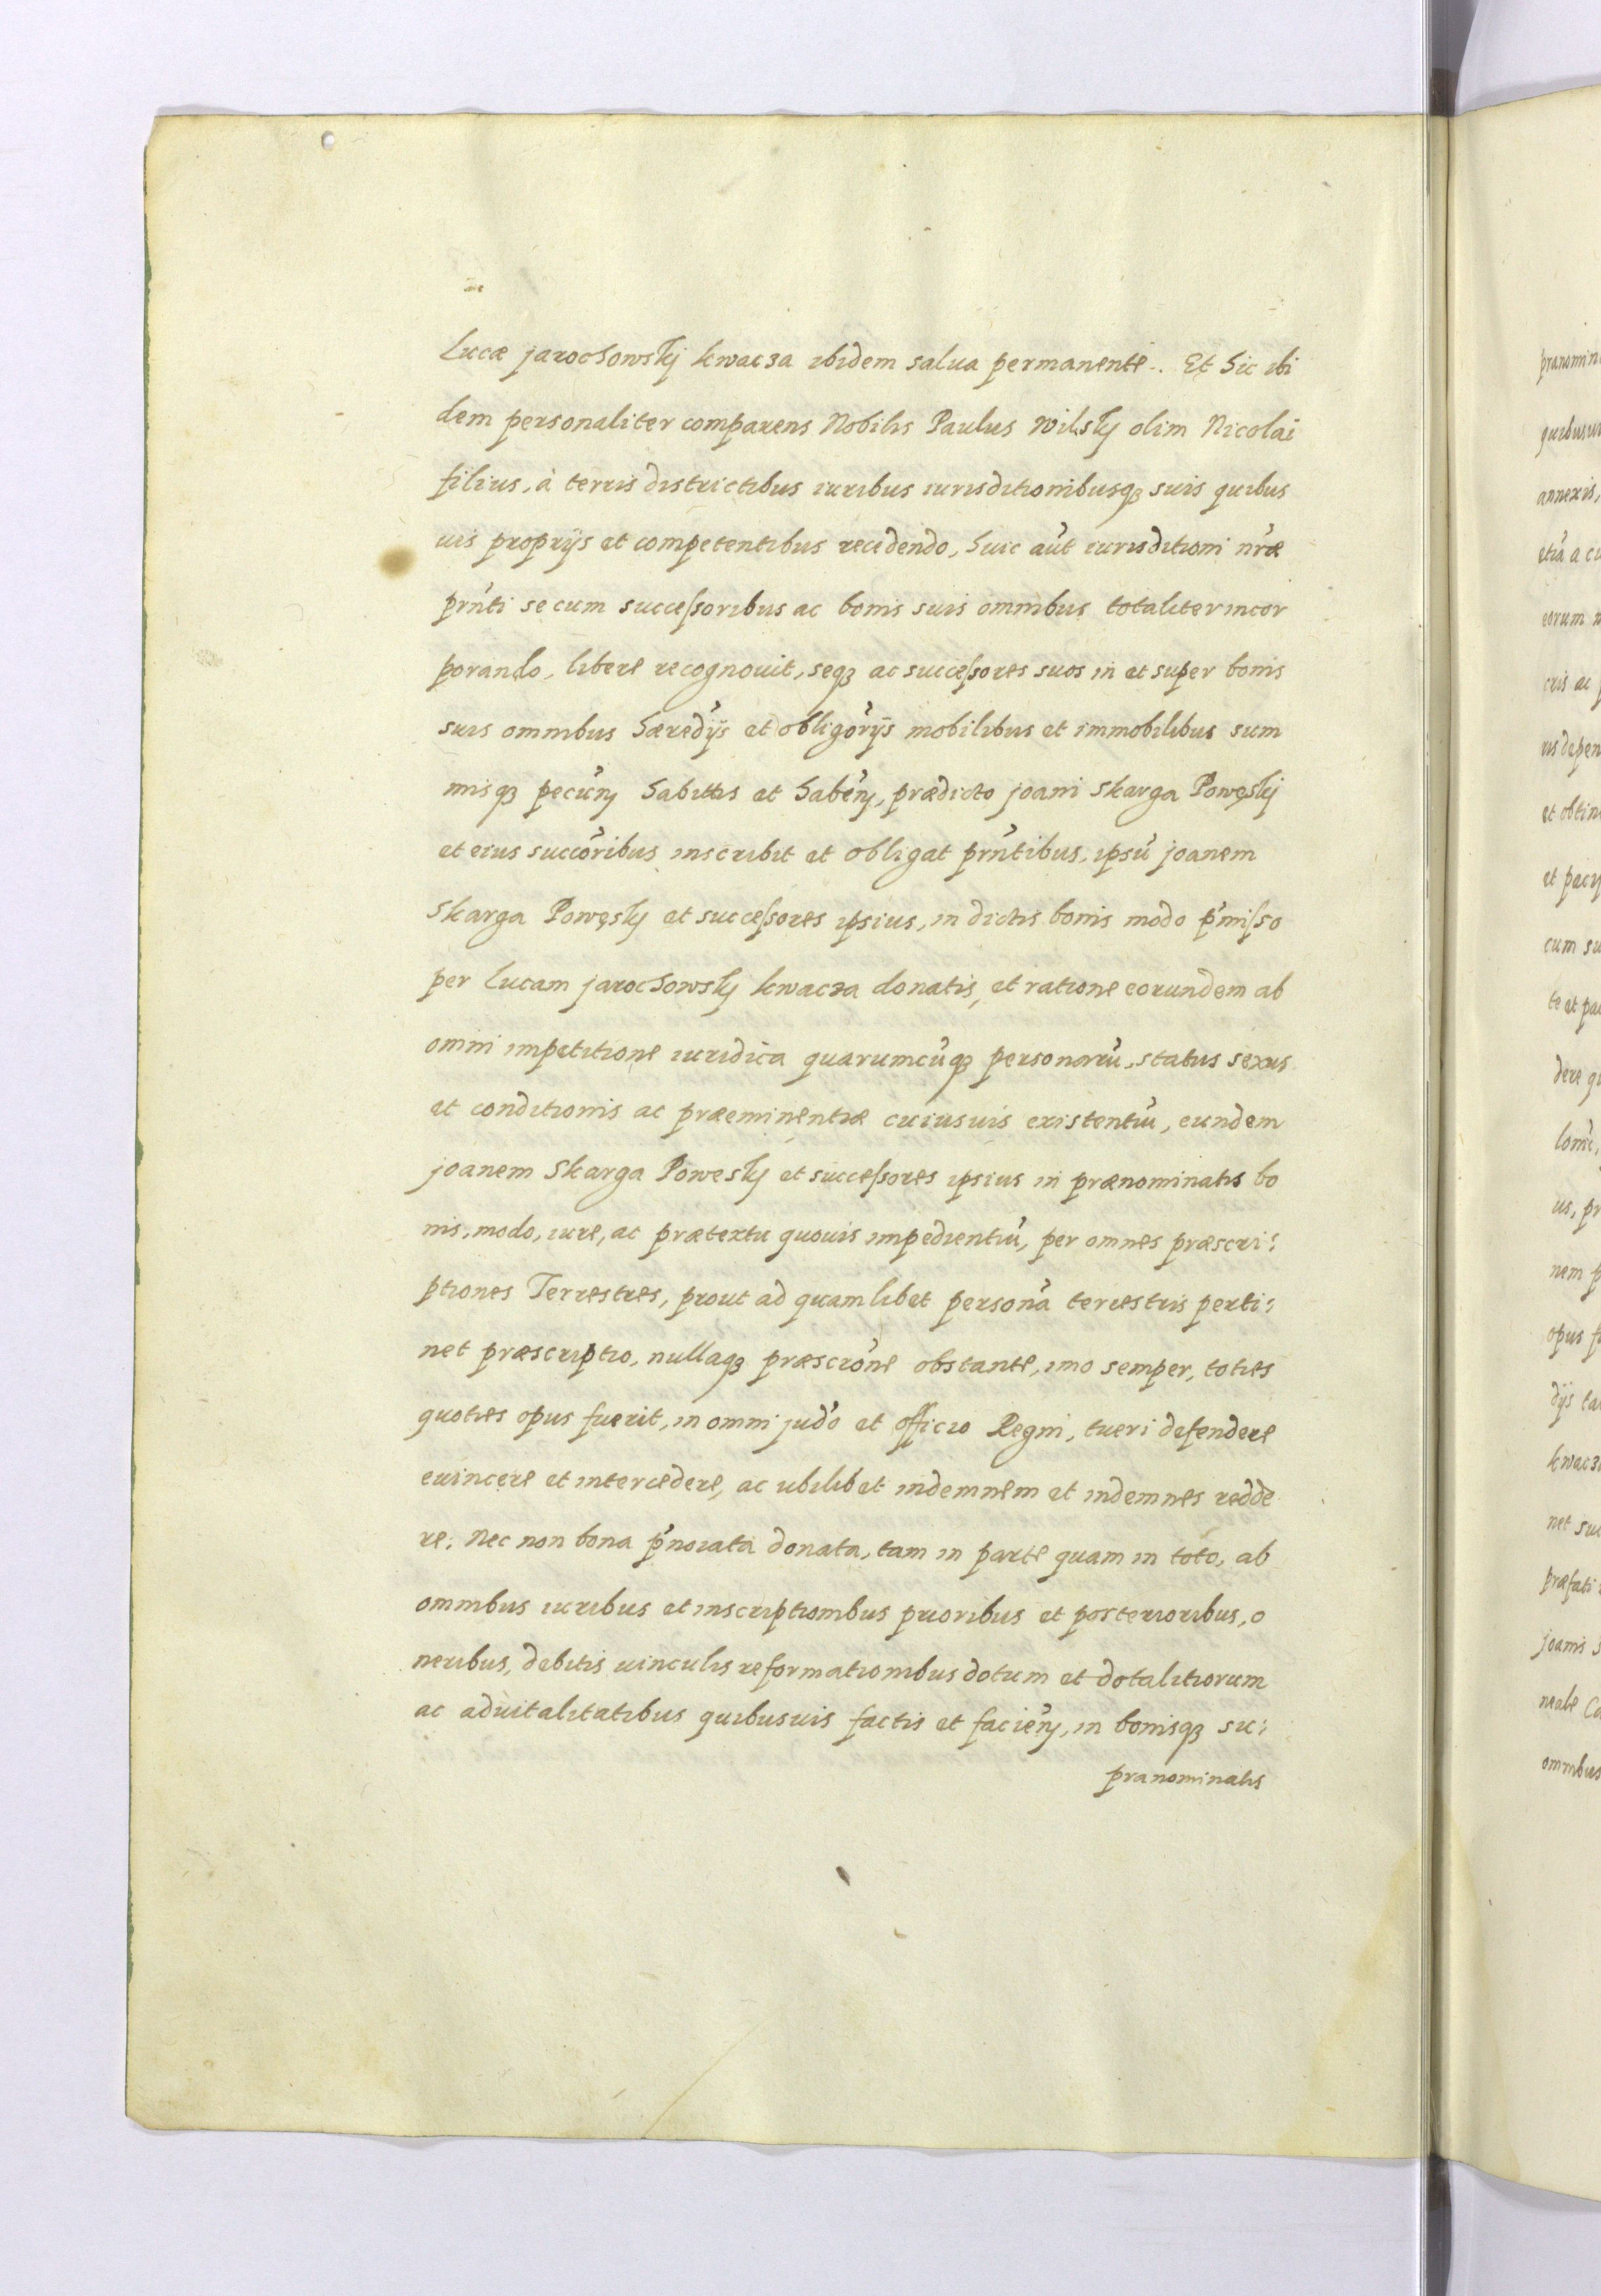 Lucæ jarochowskj kwacza ibidem salua permanente. Et hic ibi
dem personaliter comparens Nobilis Paulus Wilskj olim Nicolai
filius, à terris districtibus iuribus iurisditionibusqꝫ suis quibus
uis proprijs et competentibus recedendo, huic aut́ iurisditioni nr̃æ
prñti se cum successoribus ac bonis suis omnibus totaliter incor
porando, libere recognouit, seqꝫ ac successores suos in et super bonis
suis omnibus hæredijs et obligorijs mobilibus et immobilibus sum
misqꝫ pecuń habitis et habeń, prædicto joani Skarga Powęskj
et eius succoribus inscribit et obligat prñtibus, ipsũ joanem
Skarga Powęskj et successores ipsius, in dictis bonis modo p̃misso
per Lucam jarochowskj kwacza donatis, et ratione eorundem ab
omni impetitione iuridica quarumcũqꝫ personarũ, status sexus
et conditionis ac præeminentiæ cuiusuis existentiũ, eundem
joanem Skarga Poweskj et successores ipsius in prænominatis bo
nis, modo, iure, ac prætextu quouis impedientiũ, per omnes præscri:
ptiones Terrestres, prout ad quamlibet personã terrestris perti:
net præscriptio, nullaqꝫ præscrione obstante, imo semper, toties
quoties opus fuerit, in omni judo et officio Regni, tueri defendere
euincere et intercedere, ac ubilibet indemnem et indemnes redde
re: Nec non bona p̃noiata donata, tam in parte quam in toto, ab
omnibus iuribus et inscriptionibus prioribus et posterioribus, o
neribus, debitis uinculis reformationibus dotum et dotalitiorum
ac aduitalitatibus quibusuis factis et facień, in bonisqꝫ su:
pranominatis